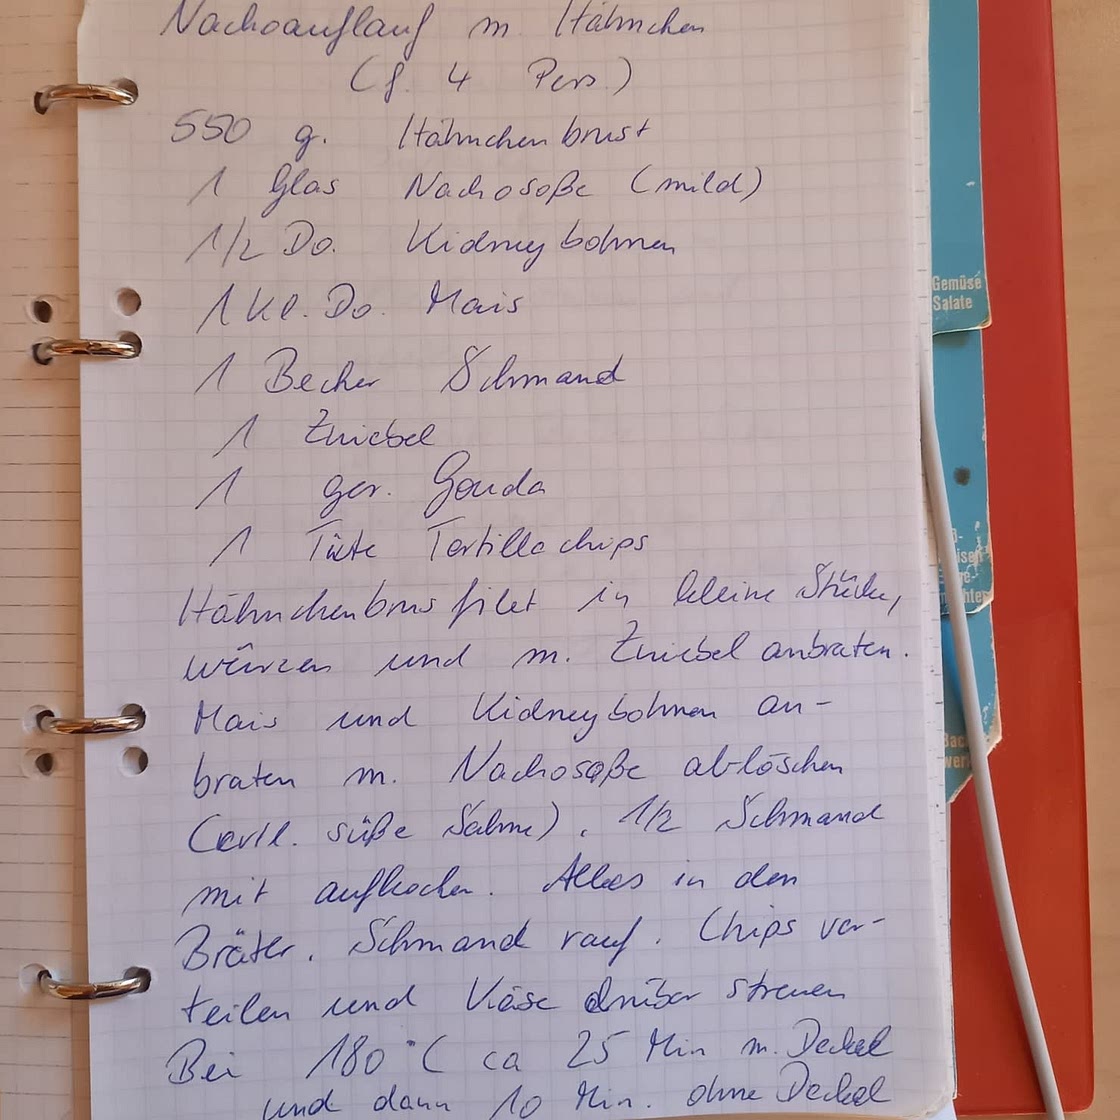 Nachoauflauf m. Hähnchen
(f. 4 Pers.)
550 g. Hähnchenbrust
1 Glas Nachosoße (mild)
1/2 Do. Kidneybohnen
1 Kl. Do. Mais
1 Becher Schmand
1 Zwiebel
1 ger. Gouda
1 Tüte Tortillachips
Hähnchenbrusfilet in kleine Stücke,
würzen und m. Zwiebel anbraten.
Mais und Kidneybohnen an-
braten m. Nachosoße ablöschen
(evtl. süße Sahne). 1/2 Schmand
mit aufkochen. Alles in den
Bräter. Schmand rauf. Chips ver-
teilen und Käse drüber streuen
Bei 180°C ca 25 Min m. Deckel
und dann 10 Min. ohne Deckel
Gemüse
Salate